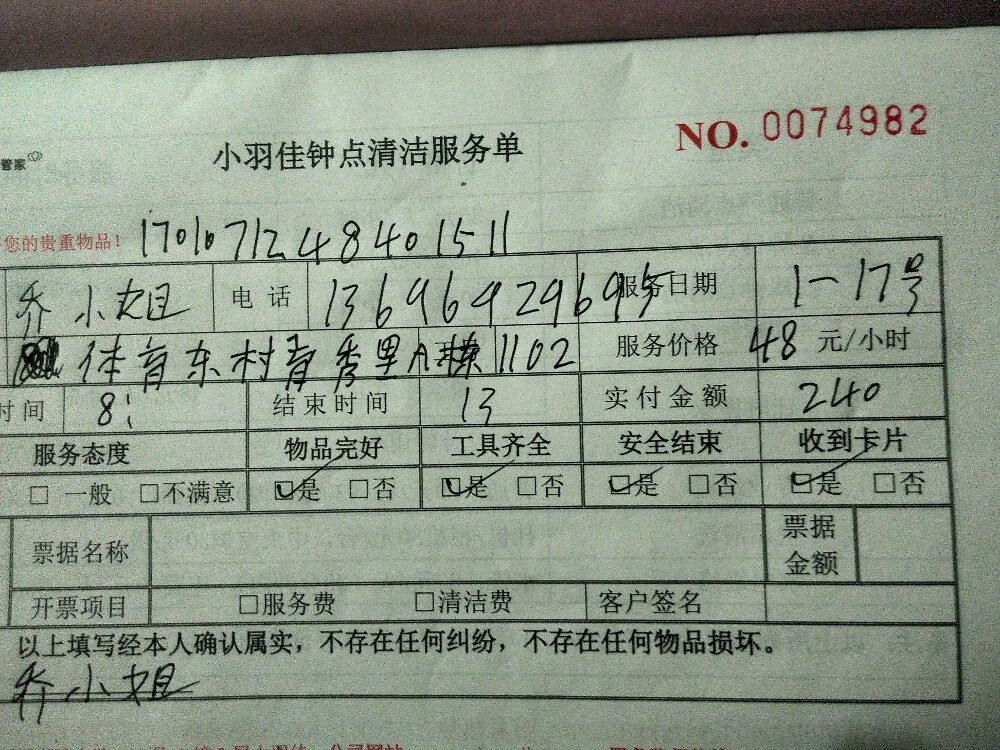 管家 小羽佳钟点清洁服务单 NO. 0074982
您的贵重物品! 17010712484015 11
乔小姐 电话 13696929695 服务日期 1-17号
体育东村育秀里A栋1102 服务价格 48 元/小时
时间 8: 结束时间 13 实付金额 240
服务态度 物品完好 工具齐全 安全结束 收到卡片
□ 一般 □不满意 ☑是 □否 ☑是 □否 ☑是 □否 ☑是 □否
票据名称 票据金额
开票项目 □服务费 □清洁费 客户签名
以上填写经本人确认属实，不存在任何纠纷，不存在任何物品损坏。
乔小姐